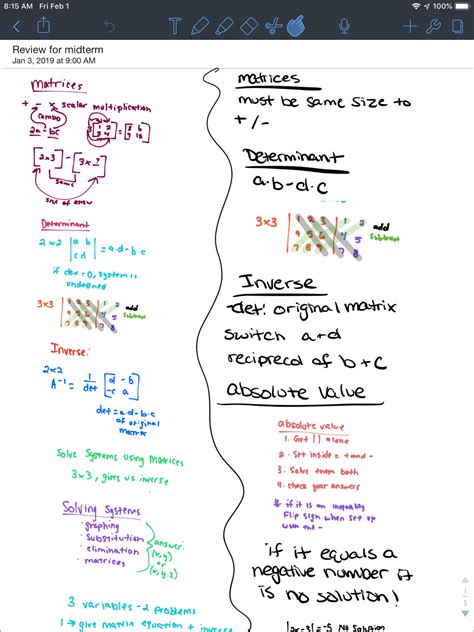 8:15 AM Fri Feb 1
100%
Review for midterm
Jan 3, 2019 at 9:00 AM
Matrices
+ - × scalar multiplication
combo
2a - bc
3[1 2
3 4] = [3 6
9 12]
[2x3] - [3x ?]
same
size of answ
Determinant
2x2 |a b
c d| = a·d - b·c
if det = 0, system is
undefined
3x3
1 2 3 1 2
4 5 6 4 5
7 8 9 7 8
add
Subtract
Inverse:
2x2
A⁻¹ = 1/det [d -b
-c a]
det = a·d - b·c
of original
matrix
Solve Systems using Matrices
3x3, gives us inverse
Solving Systems
· graphing
· Substitution
· elimination
· matrices
answer
(x,y)
or
(x,y,z)
3 variables - 2 problems
1 → give matrix equation + inverse
matrices
must be same size to
+ / -
Determinant
a·b - d·c
3x3
1 2 3 1 2
4 5 6 4 5
7 8 9 7 8
add
Subtract
Inverse
det: original matrix
switch a+d
reciprecol of b + c
absolute value
absolute value
1. Get | | alone
2. Set inside = + and -
3. Solve them both
4. check your answers
* if it is an inequality
Flip sign when set up
with the -
if it equals a
negative number it
is no solution!
|2x-3| = -5 No Solution
1
5